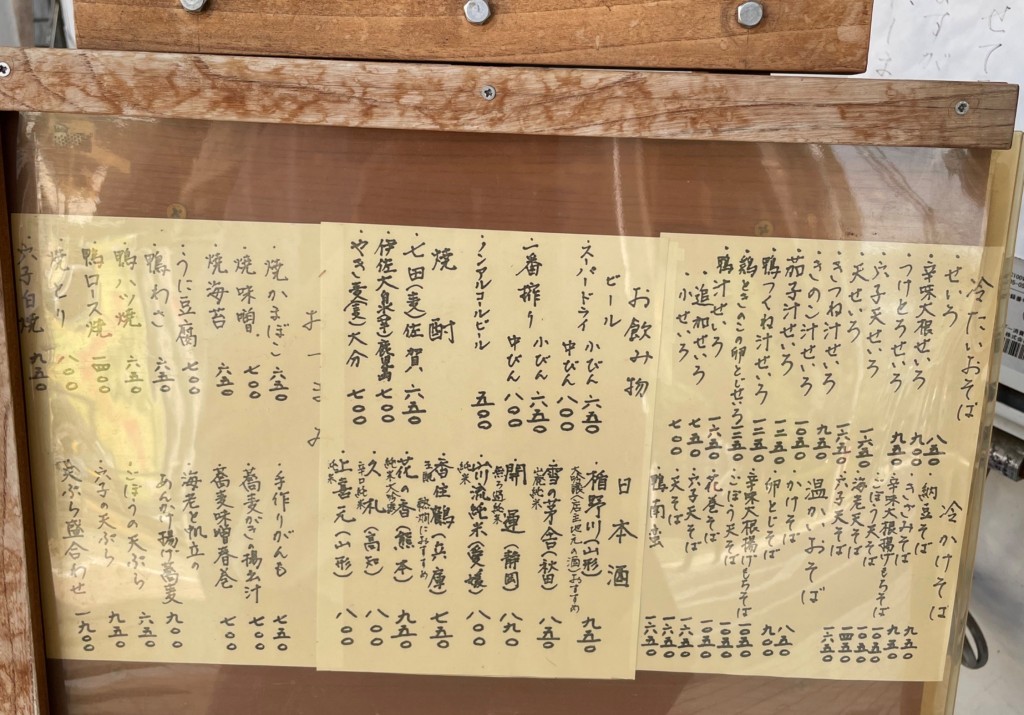 冷たいおそば
・せいろ 八五〇
・辛味大根せいろ 九〇〇
・つけとろせいろ 九五〇
・穴子天せいろ 一六五〇
・天せいろ 一六五〇
・きつね汁せいろ 九五〇
・きのこ汁せいろ 一〇五〇
・茄子汁せいろ 一二五〇
・鴨つくね汁せいろ 一二五〇
・鶏ときのこの卵とじせいろ 一二五〇
・鴨汁せいろ 一六五〇
・追加せいろ 七五〇
・小せいろ 七〇〇
冷かけそば
・納豆そば 九五〇
・きざみそば 九五〇
・辛味大根揚げもちそば 一〇五〇
・ごぼう天そば 一〇五〇
・海老天そば 一四五〇
・穴子天そば 一六五〇
温かいおそば
・かけそば 八五〇
・卵とじそば 九〇〇
・辛味大根揚げもちそば 一〇五〇
・ごぼう天そば 一〇五〇
・花巻そば 一〇五〇
・穴子天そば 一六五〇
・天そば 一六五〇
・鴨南蛮 一六五〇
お飲み物
ビール
スーパードライ 小びん 六五〇
中びん 八〇〇
一番搾り 小びん 六五〇
中びん 八〇〇
ノンアルコールビール 五〇〇
焼酎
・七田(麦)佐賀 六五〇
・伊佐大泉(芋)鹿児島 七〇〇
・やきい麦(麦)大分 七〇〇
日本酒
・楯野川(山形) 九五〇
大吟醸(店主地元の酒)おすすめ
・雪の茅舎(秋田) 八五〇
山廃純米
・開運(静岡) 九〇〇
無ろ過純米
・川流純米(愛媛) 八〇〇
純米
・香住鶴(兵庫) 七五〇
生酛 熱燗におすすめ
・花の香(熊本) 九五〇
純米大吟醸
・久礼(高知) 八〇〇
辛口純米
・上喜元(山形) 八〇〇
純米
おつまみ
・焼かまぼこ 六五〇
・焼味噌 七〇〇
・焼海苔 六五〇
・うに豆腐 七〇〇
・鴨わさ 六五〇
・鴨ハツ焼 六五〇
・鴨ロース焼 一四〇〇
・焼とり 八〇〇
・穴子白焼 九五〇
・手作りがんも 七五〇
・蕎麦がきの揚出汁 七〇〇
・蕎麦味噌春巻 七〇〇
・海老と帆立の
あんかけ揚げ蕎麦 九〇〇
・ごぼうの天ぷら 六五〇
・穴子の天ぷら 九五〇
・天ぷら盛合わせ 一九〇〇